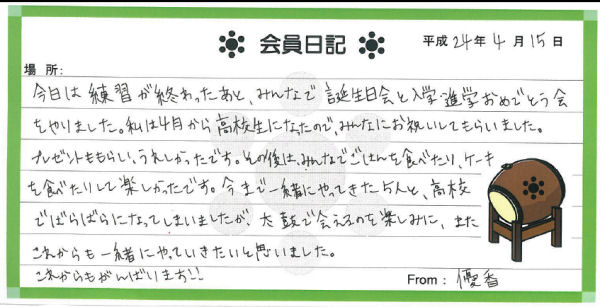 会員日記
平成24年4月15日
場所:
今日は練習が終わったあと、みんなで誕生日会と入学進学おめでとう会
をやりました。私は4月から高校生になったので、みんなにお祝いしてもらいました。
プレゼントももらい、うれしかったです。その後は、みんなでごはんを食べたり、ケーキ
を食べたりして楽しかったです。今まで一緒にやってきた5人と、高校
でばらばらになってしまいましたが、太鼓で会えるのを楽しみに、また
これからも一緒にやっていきたいと思いました。
これからもがんばります!!
From: 優香